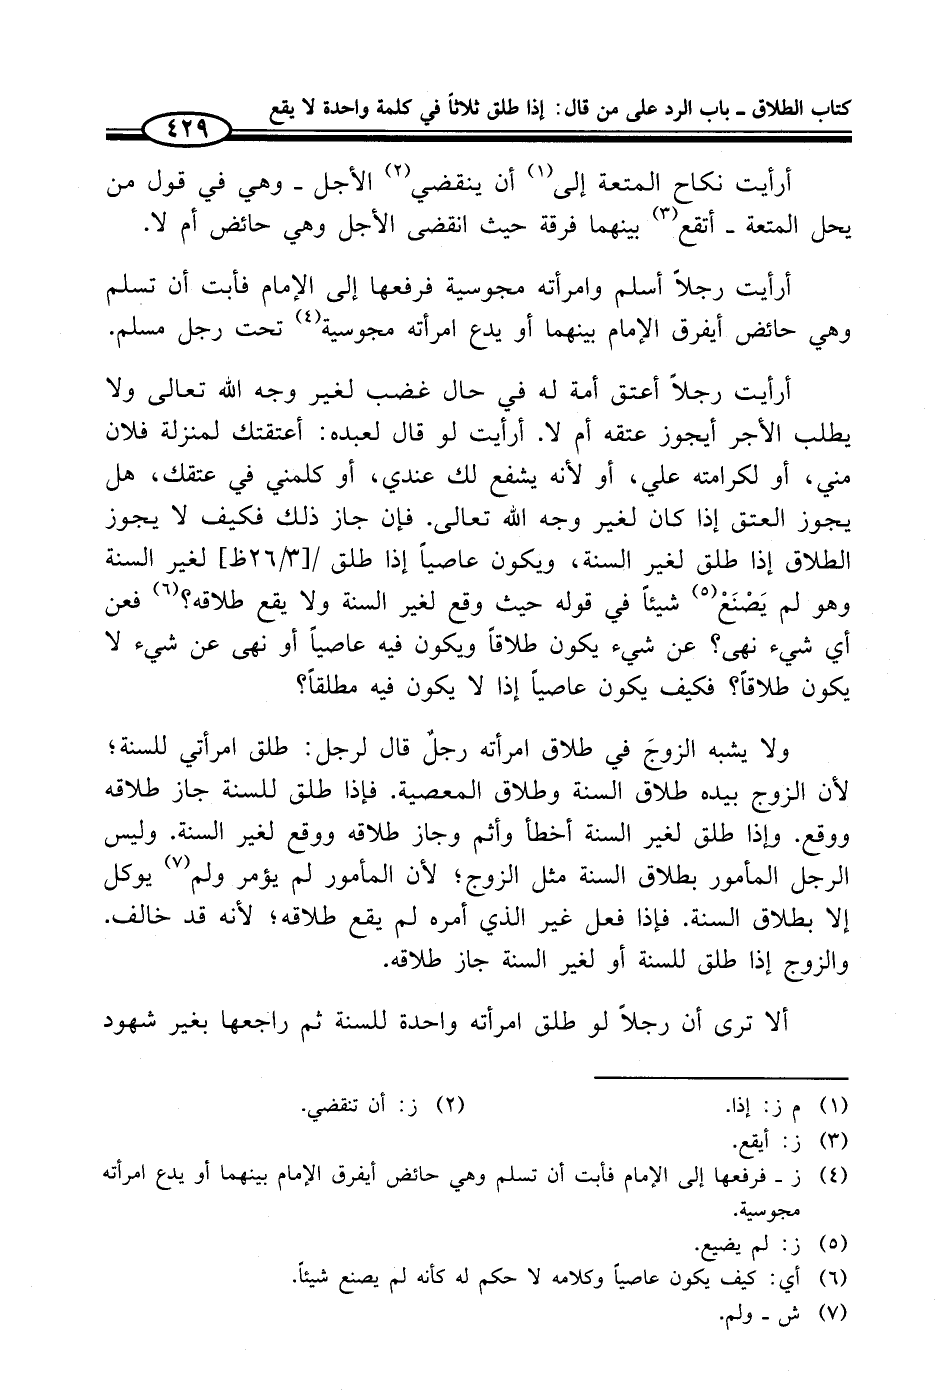 كتاب الطلاق ـ باب الرد على من قال: إذا طلق ثلاثاً في كلمة واحدة لا يقع
٤٢٩
أرأيت نكاح المتعة إلى(١) أن ينقضي(٢) الأجل ـ وهي في قول من
يحل المتعة ـ أتقع(٣) بينهما فرقة حيث انقضى الأجل وهي حائض أم لا.
أرأيت رجلاً أسلم وامرأته مجوسية فرفعها إلى الإمام فأبت أن تسلم
وهي حائض أيفرق الإمام بينهما أو يدع امرأته مجوسية(٤) تحت رجل مسلم.
أرأيت رجلاً أعتق أمة له في حال غضب لغير وجه الله تعالى ولا
يطلب الأجر أيجوز عتقه أم لا. أرأيت لو قال لعبده: أعتقتك لمنزلة فلان
مني، أو لكرامته علي، أو لأنه يشفع لك عندي، أو كلمني في عتقك، هل
يجوز العتق إذا كان لغير وجه الله تعالى. فإن جاز ذلك فكيف لا يجوز
الطلاق إذا طلق لغير السنة، ويكون عاصياً إذا طلق /[٢٦/٣ظ] لغير السنة
وهو لم يَصْنَعْ(٥) شيئاً في قوله حيث وقع لغير السنة ولا يقع طلاقه؟(٦) فعن
أي شيء نهى؟ عن شيء يكون طلاقاً ويكون فيه عاصياً أو نهى عن شيء لا
يكون طلاقاً؟ فكيف يكون عاصياً إذا لا يكون فيه مطلقاً؟
ولا يشبه الزوجَ في طلاق امرأته رجلٌ قال لرجل: طلق امرأتي للسنة؛
لأن الزوج بيده طلاق السنة وطلاق المعصية. فإذا طلق للسنة جاز طلاقه
ووقع. وإذا طلق لغير السنة أخطأ وأثم وجاز طلاقه ووقع لغير السنة. وليس
الرجل المأمور بطلاق السنة مثل الزوج؛ لأن المأمور لم يؤمر ولم(٧) يوكل
إلا بطلاق السنة. فإذا فعل غير الذي أمره لم يقع طلاقه؛ لأنه قد خالف.
والزوج إذا طلق للسنة أو لغير السنة جاز طلاقه.
ألا ترى أن رجلاً لو طلق امرأته واحدة للسنة ثم راجعها بغير شهود
(١) م ز: إذا. (٢) ز: أن تنقضي.
(٣) ز: أيقع.
(٤) ز ـ فرفعها إلى الإمام فأبت أن تسلم وهي حائض أيفرق الإمام بينهما أو يدع امرأته
مجوسية.
(٥) ز: لم يضيع.
(٦) أي: كيف يكون عاصياً وكلامه لا حكم له كأنه لم يصنع شيئاً.
(٧) ش ـ ولم.